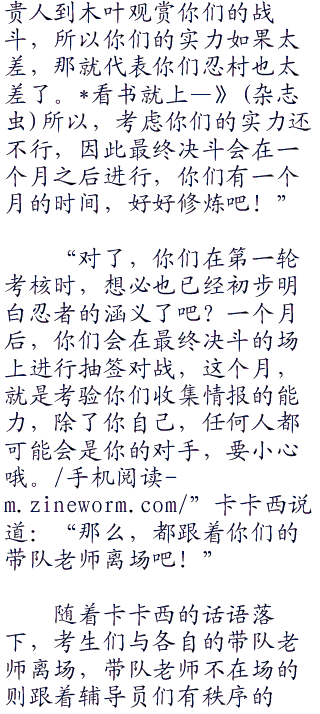 贵人到木叶观赏你们的战
斗，所以你们的实力如果太
差，那就代表你们忍村也太
差了。*看书就上—》(杂志
虫)所以，考虑你们的实力还
不行，因此最终决斗会在一
个月之后进行，你们有一个
月的时间，好好修炼吧！”
“对了，你们在第一轮
考核时，想必也已经初步明
白忍者的涵义了吧？一个月
后，你们会在最终决斗的场
上进行抽签对战，这个月，
就是考验你们收集情报的能
力，除了你自己，任何人都
可能会是你的对手，要小心
哦。/手机阅读-
m.zineworm.com/”卡卡西说
道：“那么，都跟着你们的
带队老师离场吧！”
随着卡卡西的话语落
下，考生们与各自的带队老
师离场，带队老师不在场的
则跟着辅导员们有秩序的